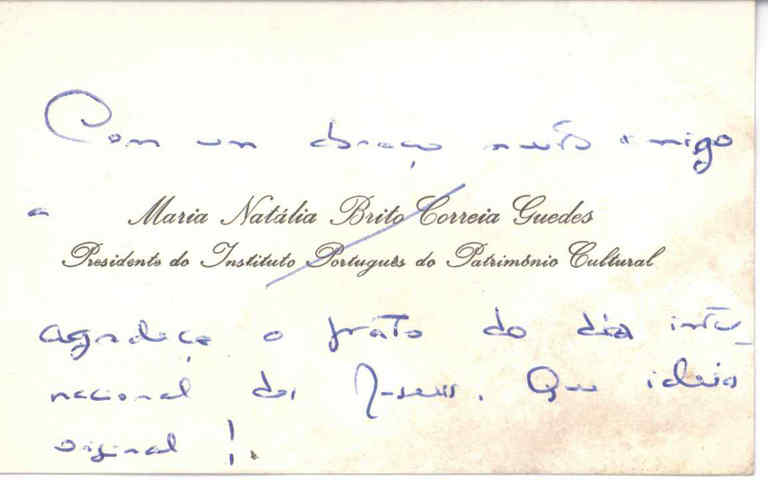 Com um abraço muito amigo
a
Maria Natália Brito Correia Guedes
Presidente do Instituto Português do Património Cultural
agradece o prato do dia inter-
nacional dos Museus. Que ideia
original!.